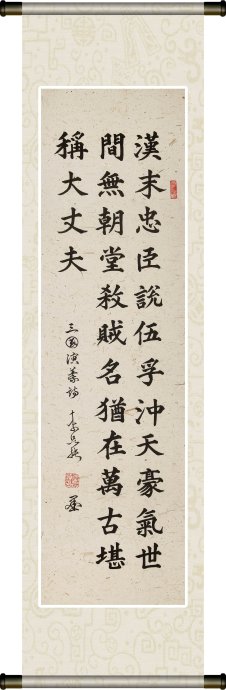 漢末忠臣說伍孚沖天豪氣世
間無朝堂殺賊名猶在萬古堪
稱大丈夫
三國演義詩